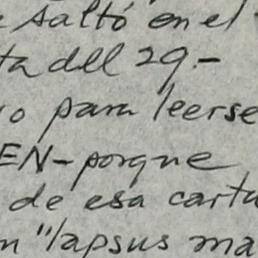 saltó en el
ta dell 29.-
o para leerse
EN-porque
de esa carta
n "lapsus ma